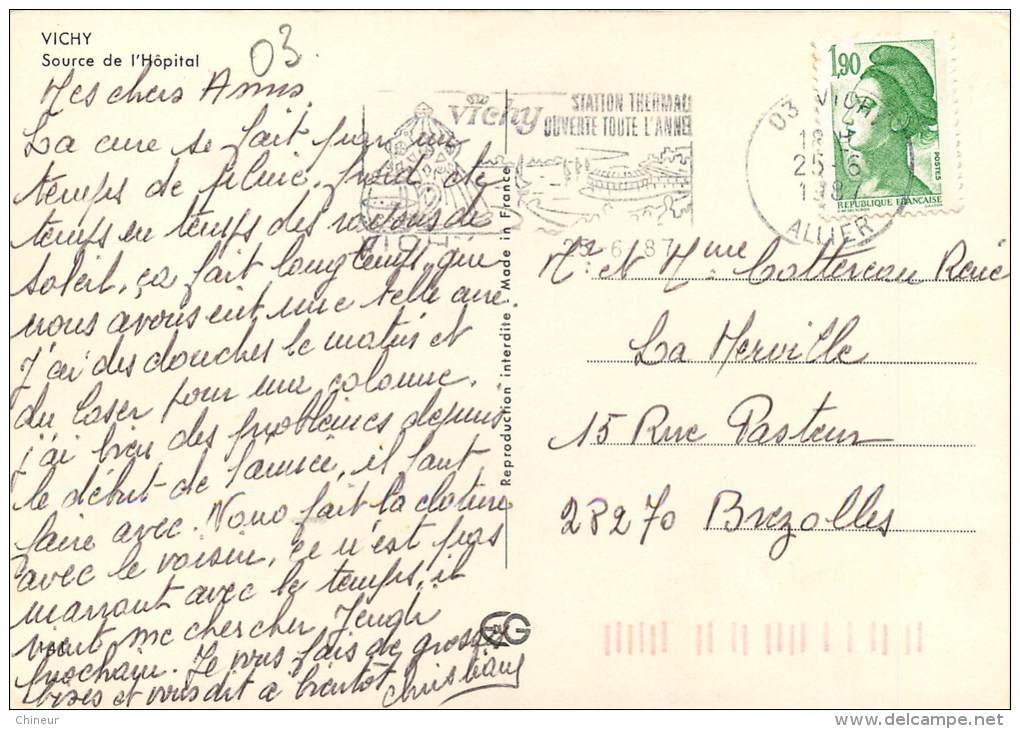 VICHY
Source de l'Hôpital
03.
Mes chers Amis
La cure se fait par un
temps de pluie, froid de
temps en temps des rayons de
soleil, ça fait longtemps que
nous avons eut une telle cure.
J'ai des douches le matin et
du laser pour ma colonne.
j'ai bien des problèmes depuis
le début de l'année, il faut
faire avec. Nono fait la cloture
avec le voisin, ce n'est pas
marrant avec le temps, il
vient me chercher Jeudi
prochain. Je vous fais de grosses
bises et vous dit a bientôt
Christiane
Reproduction interdite - Made in France
EG
vichy
STATION THERMALE
OUVERTE TOUTE L'ANNEE
VICHY
25-6-87
03 VICHY
18 H
25-6
1987
ALLIER
1,90
POSTES
REPUBLIQUE FRANÇAISE
Mr et Mme Cottereau René
La Merville
15 Rue Pasteur
28270 Brezolles
Chineur
http://www.delcampe.net